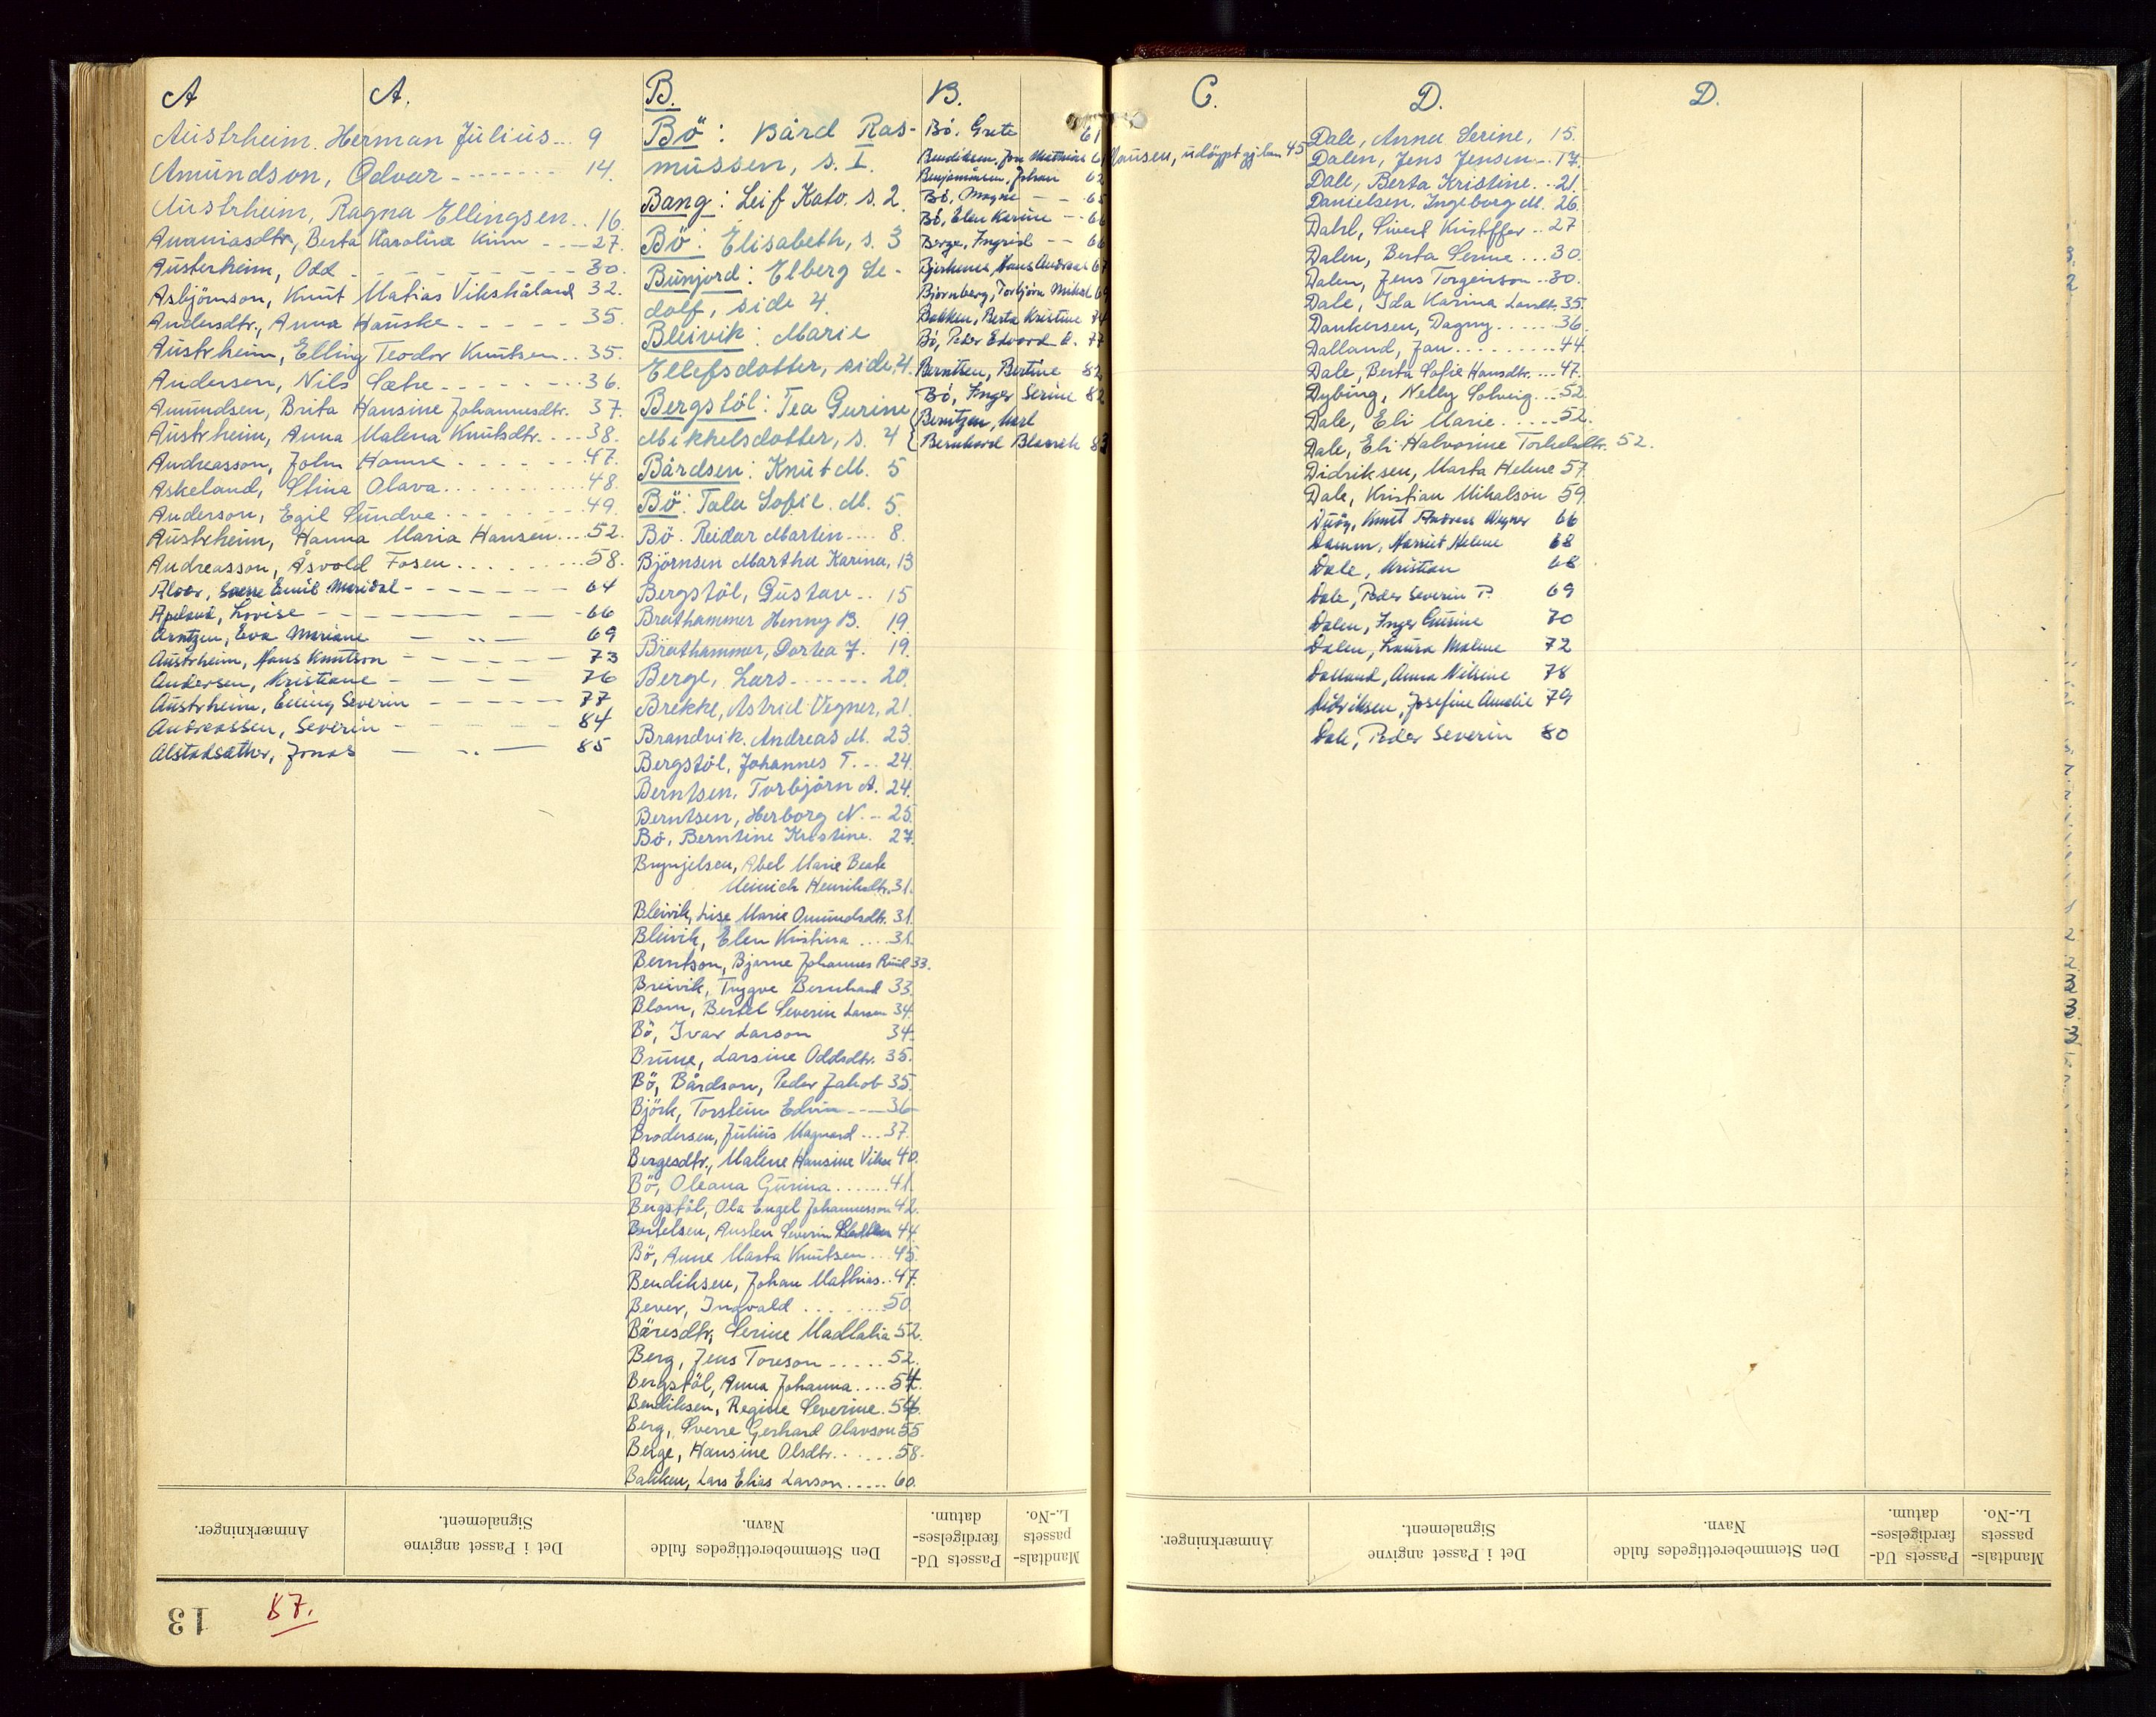 A
A.
Austrheim. Herman Julius... 9
Amundson, Odvar - - - - - - - - 14.
Austrheim, Ragna Ellingsen. . 16.
Ananiasdtr, Berta Karoline Kinn - - - 27.
Austerheim, Odd - - - - - - 30.
Asbjörnson, Knut Matias Vikshåland 32.
Andersdtr., Anna Hauske - - - - - 35.
Austrheim, Elling Teodor Knutsen. . 35.
Andersen, Nils Sæhe - - - - - - - - 36.
Amundsen, Brita Hansine Johannesdtr. 37.
Austrheim, Anna Malena Knutsdtr. . . . 38.
Andreasson, John Hamre . . . . . . 47.
Askeland, Stina Olava. . . . . . . . 48.
Anderson, Egil Sundve . . . . . . 49.
Austrheim, Hanna Maria Hansen. . . . 52.
Andreasson, Åsvold Fosen . . . . . . . 58.
Emil - - - - - - 64
Apeland, Lovise - - - - - 66
Arntzen, Eva Mariane - „ - 69
Austrheim, Hans Knutson - - - - - - 73
Andersen, Kristiane - - - - - 76
Austrheim, Elling Severin - - - - - - 77
Andreassen, Severin - - - - - 84
Alstadsæther, Jonas - „ - 85
B.
Bö: Bård Ras-
mussen, s. I.
Bang: Leif Kato. s. 2.
Bö: Elisabeth, s. 3
Bunjord: Elberg Le-
dolf, side 4.
Bleivik: Marie
Ellefsdotter, side 4.
Bergstöl: Tea Gurine
Mikkelsdotter, s. 4
Bårdsen: Knut M. 5
Bö: Tala Sofie. M. 5.
Bö. Reidar Martin.... 8.
Björnsen Martha Karina, 13
Bergstöl, Gustav. . 15
Breithammer Henny B. 19
Breithammer, Dortea J. 19.
Berge, Lars . . . . . . . 20.
Brekke, Astrid Vegner, 21.
Brandvik. Andreas M. 23.
Bergstöl, Johannes T. . . 24.
Berntsen. Torbjörn A. 24.
Berntsen, Herborg N. - 25.
Bö, Berntine Kristine. 27.
Brynjelsen, Abel Marie Beate
Meinich Henriksdtr. 31.
Bleivik, Lise Marie Omundsdtr. 31.
Bleivik, Elen Kristina . . . . 31.
Berntson, Bjarne Johannes 33.
Breivik, Trygve Bernhard 33.
Blom, Bertel Severin Larsen 34.
Bö, Ivar Larson 34.
Brune, Larsine Oddsdtr. 35.
Bö, Bårdson, Peder Jakob 35.
Björk, Torstein Edvin - - - 36
Brodersen, Julius Magnard ... 37.
Bergesdtr., Malene Hansine Vikse 40.
Bö, Oleana Gurina . . . . . . . 41.
Bergstöl, Ola Engel Johannesson 42.
Bertelsen, Austen Severin 44.
Bö, Anne Marta Knutsen . . . 45.
Bendiksen, Johan Mathias. . 47.
Bever, Ingvald . . . . . . . . 50.
Bäresdtr, Serine Madlalia 52.
Berg, Jens Toreson . . . . . 52.
Bergstöl, Anna Johanna. . . . 54.
Bendiksen, Regine Severine. 54.
Berg, Sverre Gerhard Olavson 55
Berge, Hansine Olsdtr. . . . . . 58.
Bakken, Lars Elias Larson. . . . . 60.
B.
Bö. Grete 61
Bendiksen, Jon Matthias 61
Benjaminsen, Johan 62
Bö, Magne - - 65
Bö, Elen Karine - - 66
Berge, Ingrid - - 66
Bjerknes, Hans Andreas 67
Björnberg, Torbjörn Mikal 69
Bakken, Berta Kristine 74
Bö, Peder Edvard A. 77
Berntsen, Bertine 82
Bö, Inger Serine 82
Berntzen, Karl
Bernhard 83
C.
45
D.
Dale, Anna Serine, 15.
Dalen, Jens Jensen - . . 17.
Dale, Berta Kristine. . . 21.
Danielsen. Ingeborg M. 26.
Dahl, Sivert Kristoffer . . 27
Dalen, Berta Serine . . . 30.
Dalen, Jens Torgeirson . . . 30.
Dale, Ida Karina Larsdtr. 35.
Dankersen, Dagny . . . . . 36.
Dalland, Jan . . . . . . . . . 44.
Dale, Berta Sofie Hansdtr. . . . 47.
Dybing, Nelly Solveig . . . 52.
Dale, Eli Marie . . . . . 52.
Dale, Eli Halvorine Torkelsdtr. 52.
Didriksen, Marta Helene 57.
Dale, Kristian Mikalson 59.
Knut Andreas Wegner 66
Damm, Harriet Helene 68
Dale, Kristian 68
Dale, Peder Severin P. 69
Dalen, Inger Gurine 70
Dalen, Laura Malene 72
Dalland, Anna Nilsine 78
Didriksen, Josefine Amalie 79
Dale, Peder Severin 80
D.
Anmærkninger.
Det i Passet angivne
Signalement.
Den Stemmeberettigedes fulde
Navn.
Passets Ud-
færdigelses-
datum.
Mandtals-
passets
L.-No.
Anmærkninger.
Det i Passet angivne
Signalement.
Den Stemmeberettigedes fulde
Navn.
Passets Ud-
færdigelses-
datum.
Mandtals-
passets
L.-No.
13
87.